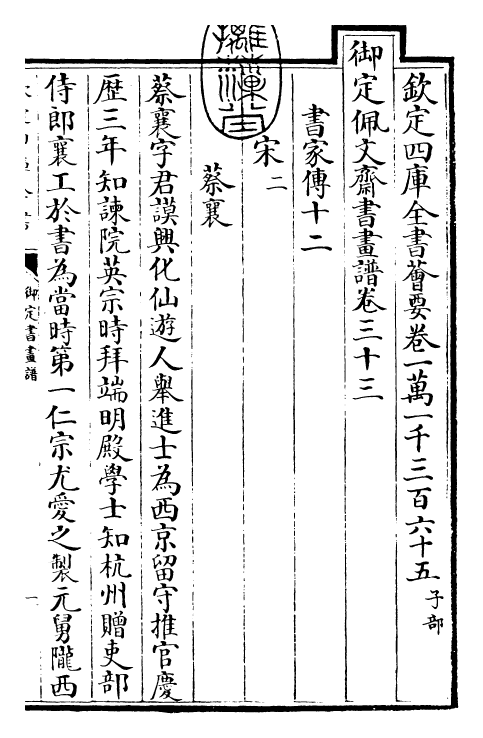 欽定四庫全書薈要卷一萬一千三百六十五 子部
御定佩文齋書畫譜卷三十三
書家傳十二
宋二
蔡襄
蔡襄字君謨興化仙遊人舉進士為西京留守推官慶
歴三年知諫院英宗時拜端明殿學士知杭州贈吏部
侍郎襄工於書為當時第一仁宗尤愛之製元舅隴西
御定書畫譜
一